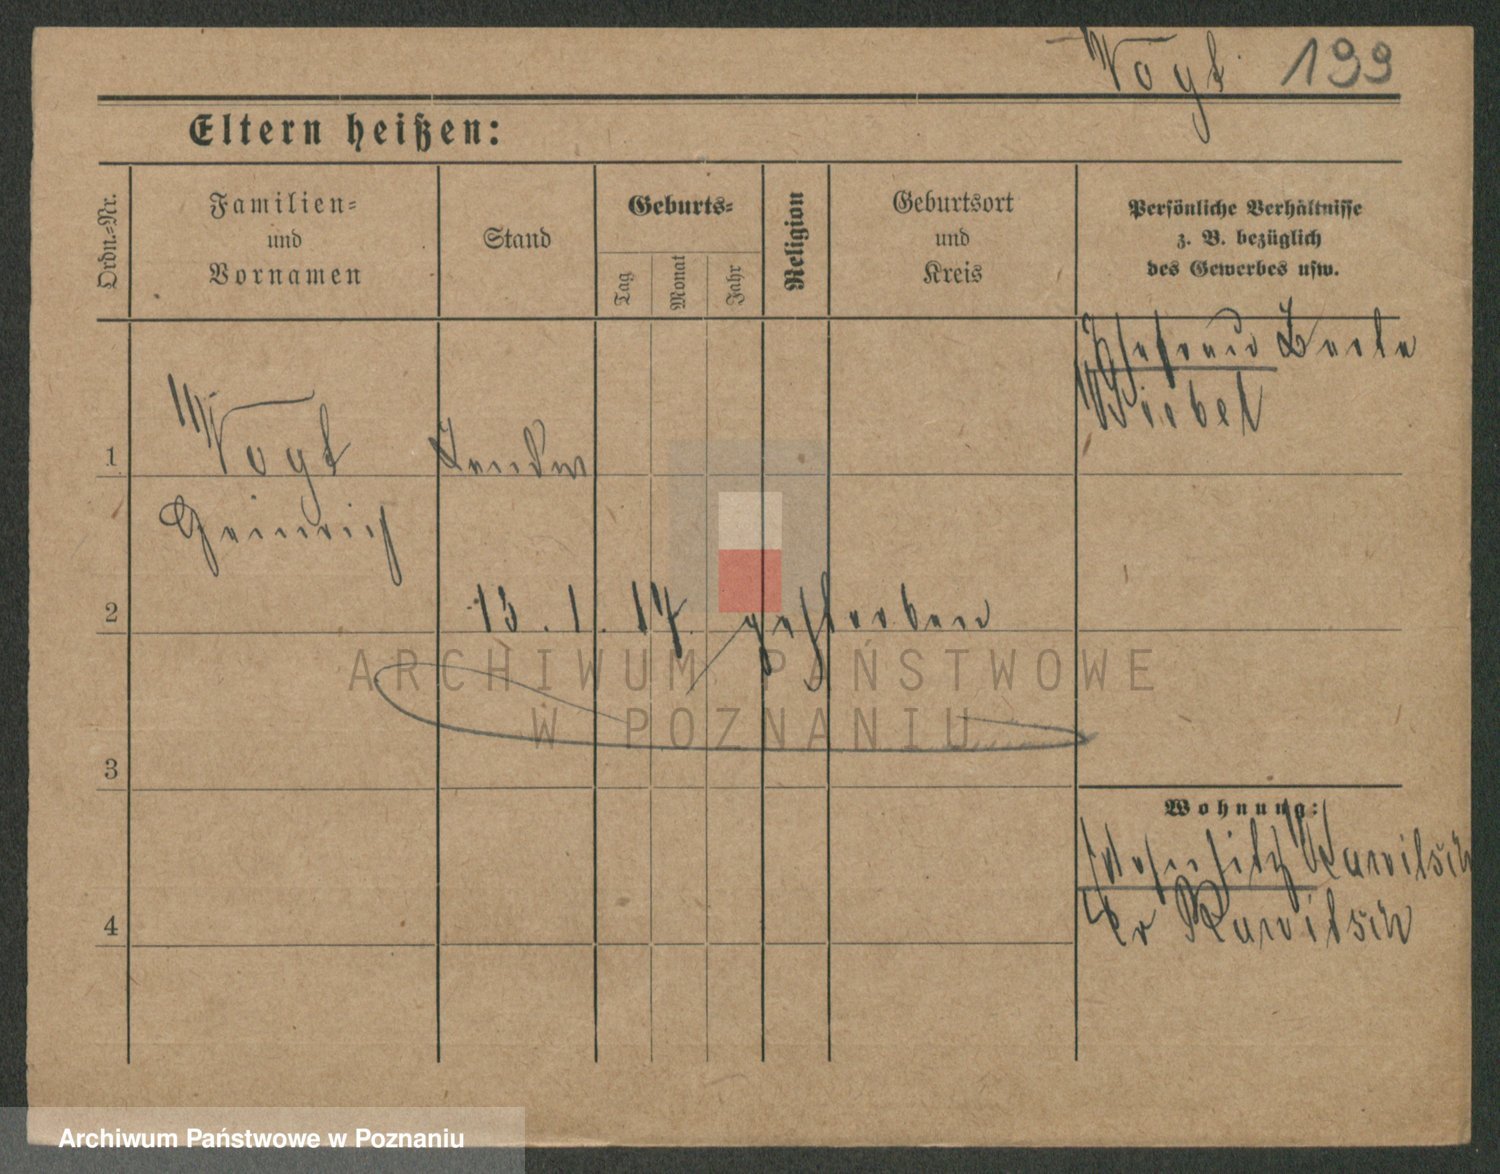 Vogt 199
Eltern heißen:
Ordn.-Nr.
Familien-
und
Vornamen
Stand
Geburts-
Tag
Monat
Jahr
Religion
Geburtsort
und
Kreis
Persönliche Verhältnisse
z. B. bezüglich
des Gewerbes usw.
Ehefrau
1
Vogt
Landw
Heinrich
2
13. 1. 17. gestorben
ARCHIWUM PAŃSTWOWE
W POZNANIU
3
Wohnung:
Rawitsch
4
Kr Rawitsch
Archiwum Państwowe w Poznaniu